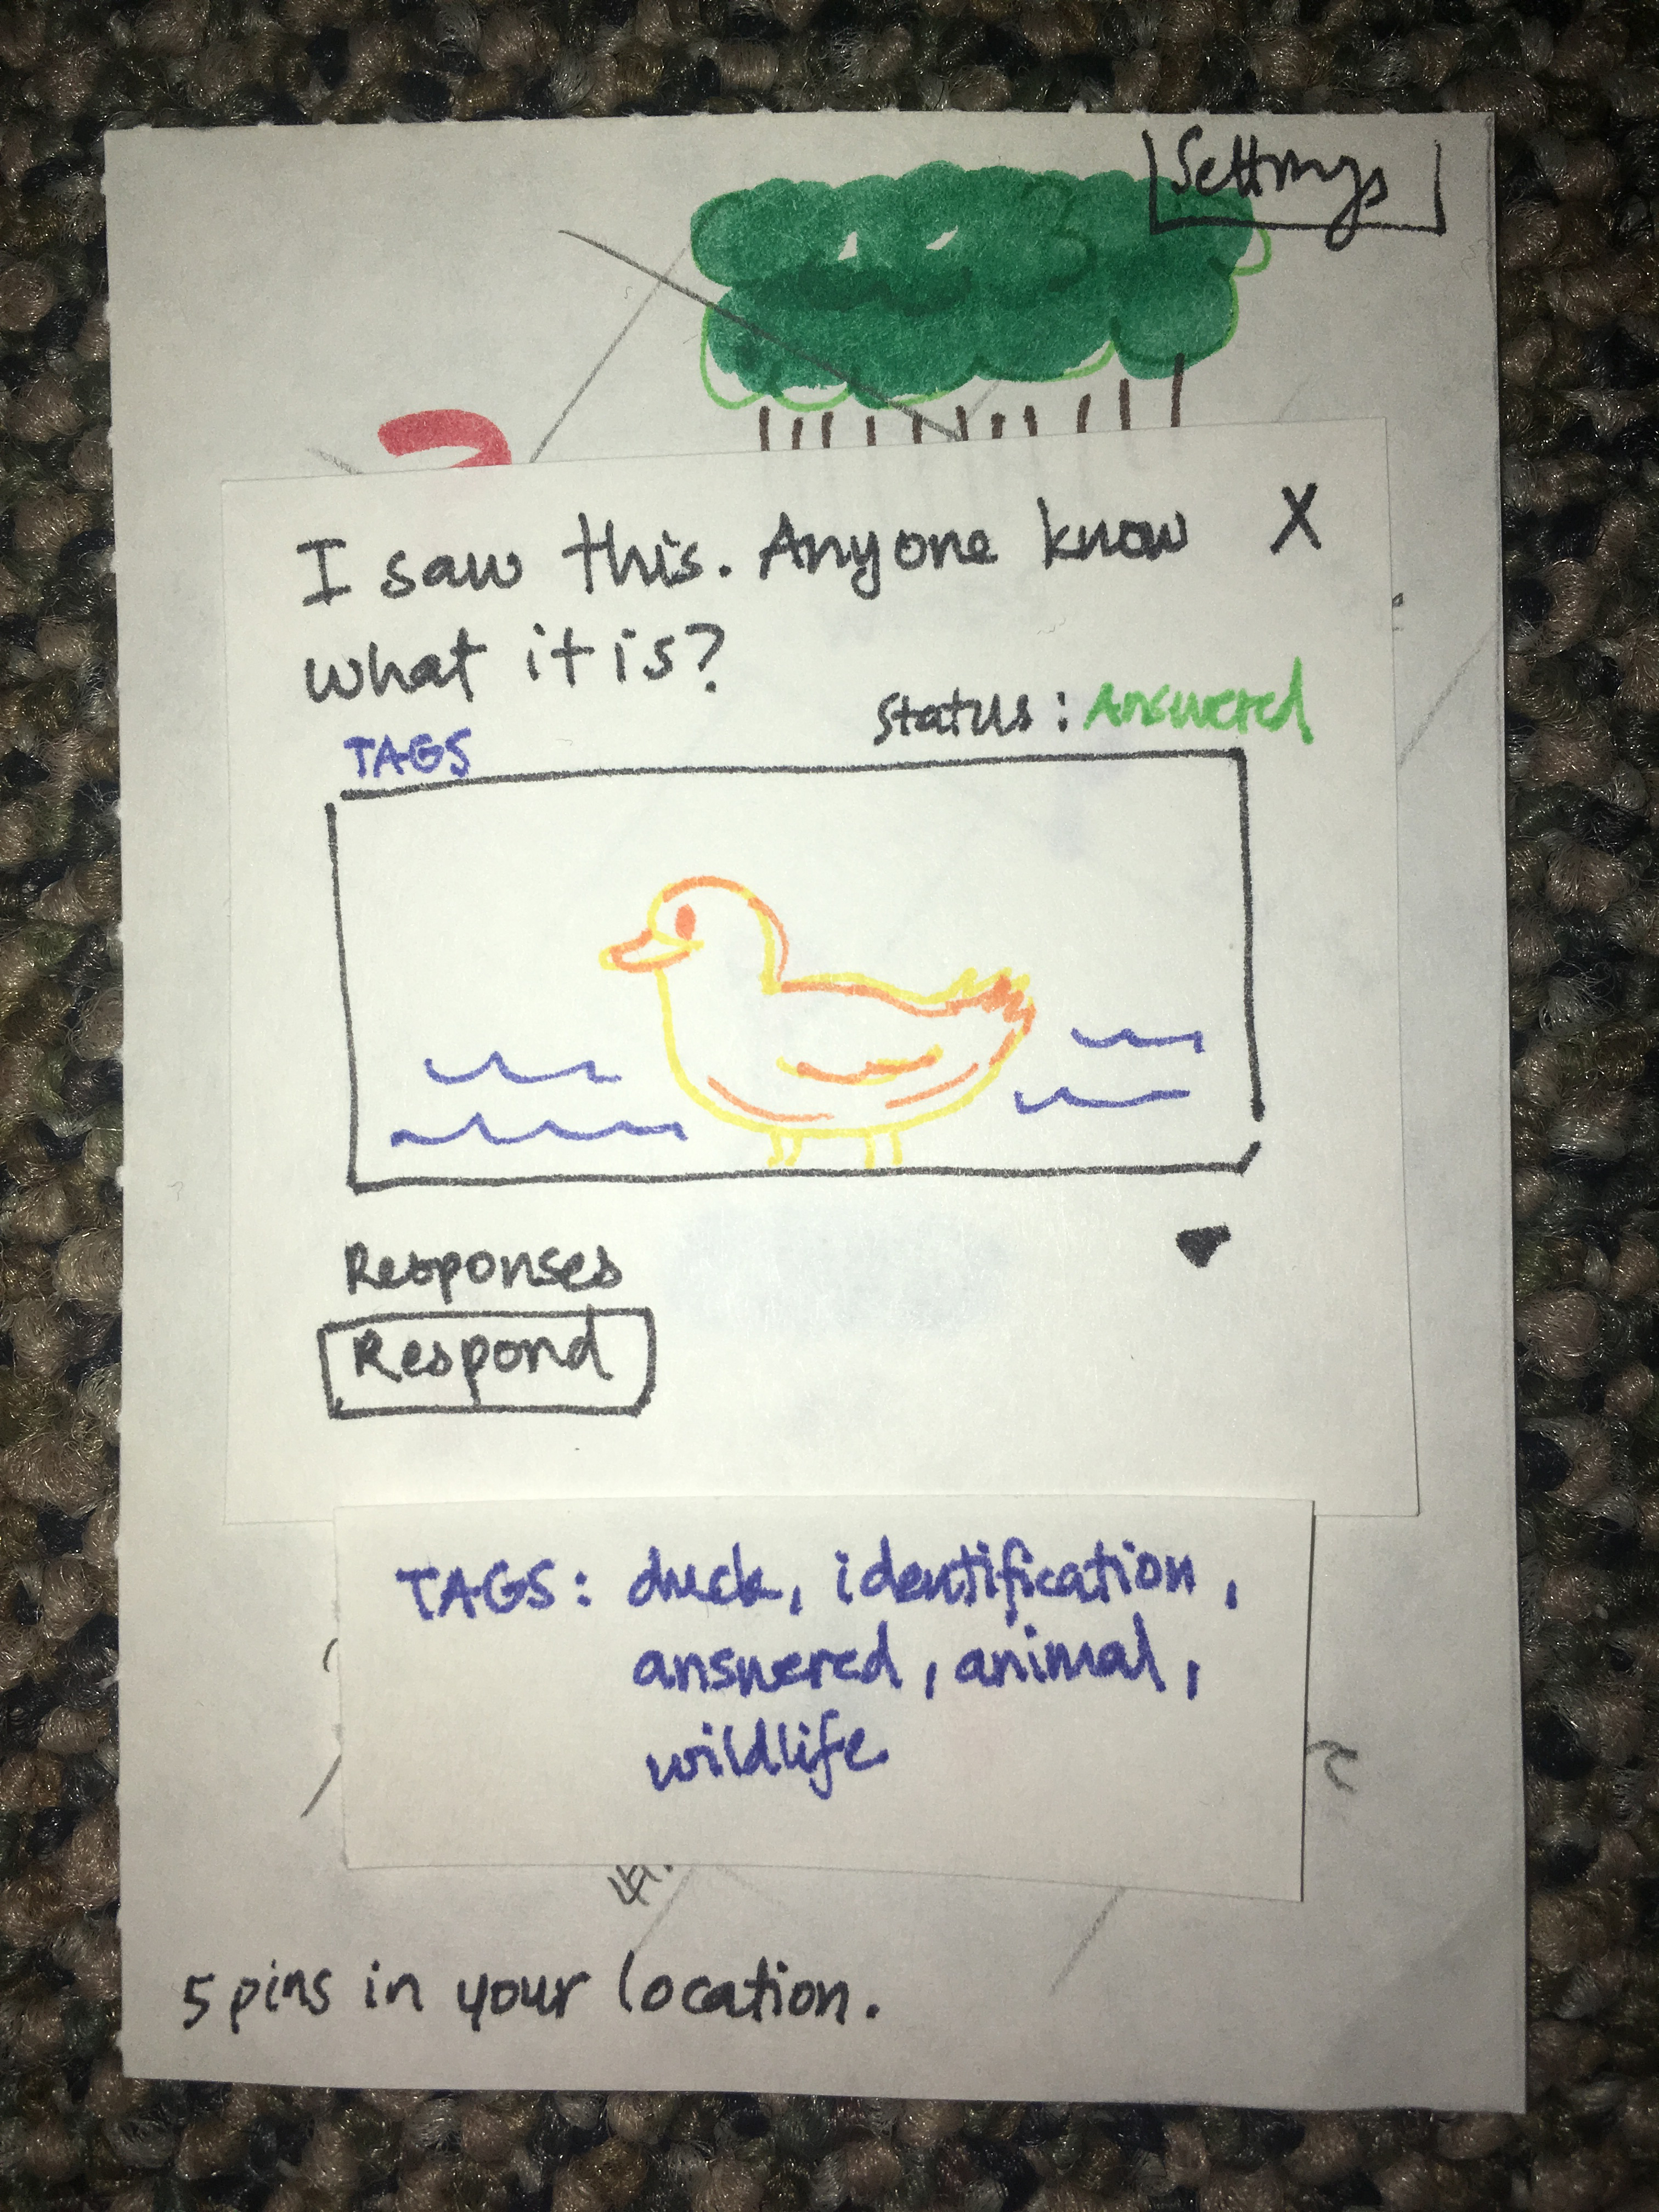 Settings
I saw this. Anyone know X
what it is?
Status: Answered
TAGS
Responses
Respond
TAGS: duck, identification,
answered, animal,
wildlife
5 pins in your location.